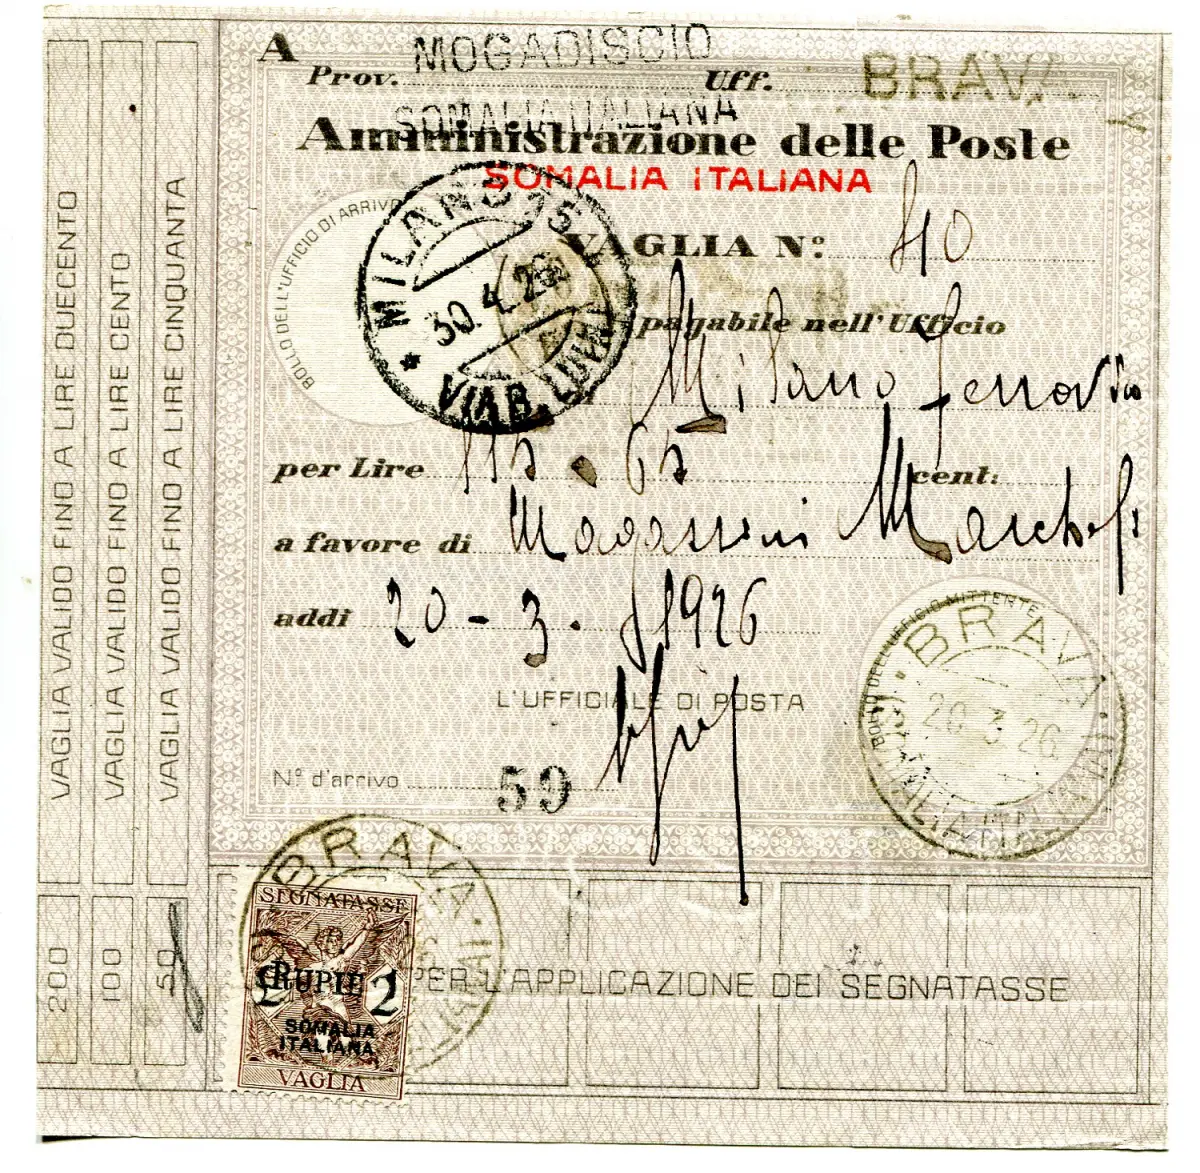 A
MOGADISCIO
Prov. Uff. BRAVA
SOMALIA ITALIANA
Amministrazione delle Poste
SOMALIA ITALIANA
VAGLIA Nº: 410
pagabile nell'Ufficio
Milano Ferrovia
per Lire 115.65 cent:
a favore di Magassini
addi 20-3. 1926
L'UFFICIALE DI POSTA
Nº d'arrivo 59
BOLLO DELL'UFFICIO DI ARRIVO
MILANO 15
30.4.26
BOLLO DELL'UFFICIO MITTENTE
BRAVA
20.3.26
VAGLIA VALIDO FINO A LIRE DUECENTO
VAGLIA VALIDO FINO A LIRE CENTO
VAGLIA VALIDO FINO A LIRE CINQUANTA
200
100
50
BRAVA
SEGNATASSE
RUPIE 2
SOMALIA
ITALIANA
VAGLIA
PER L'APPLICAZIONE DEI SEGNATASSE